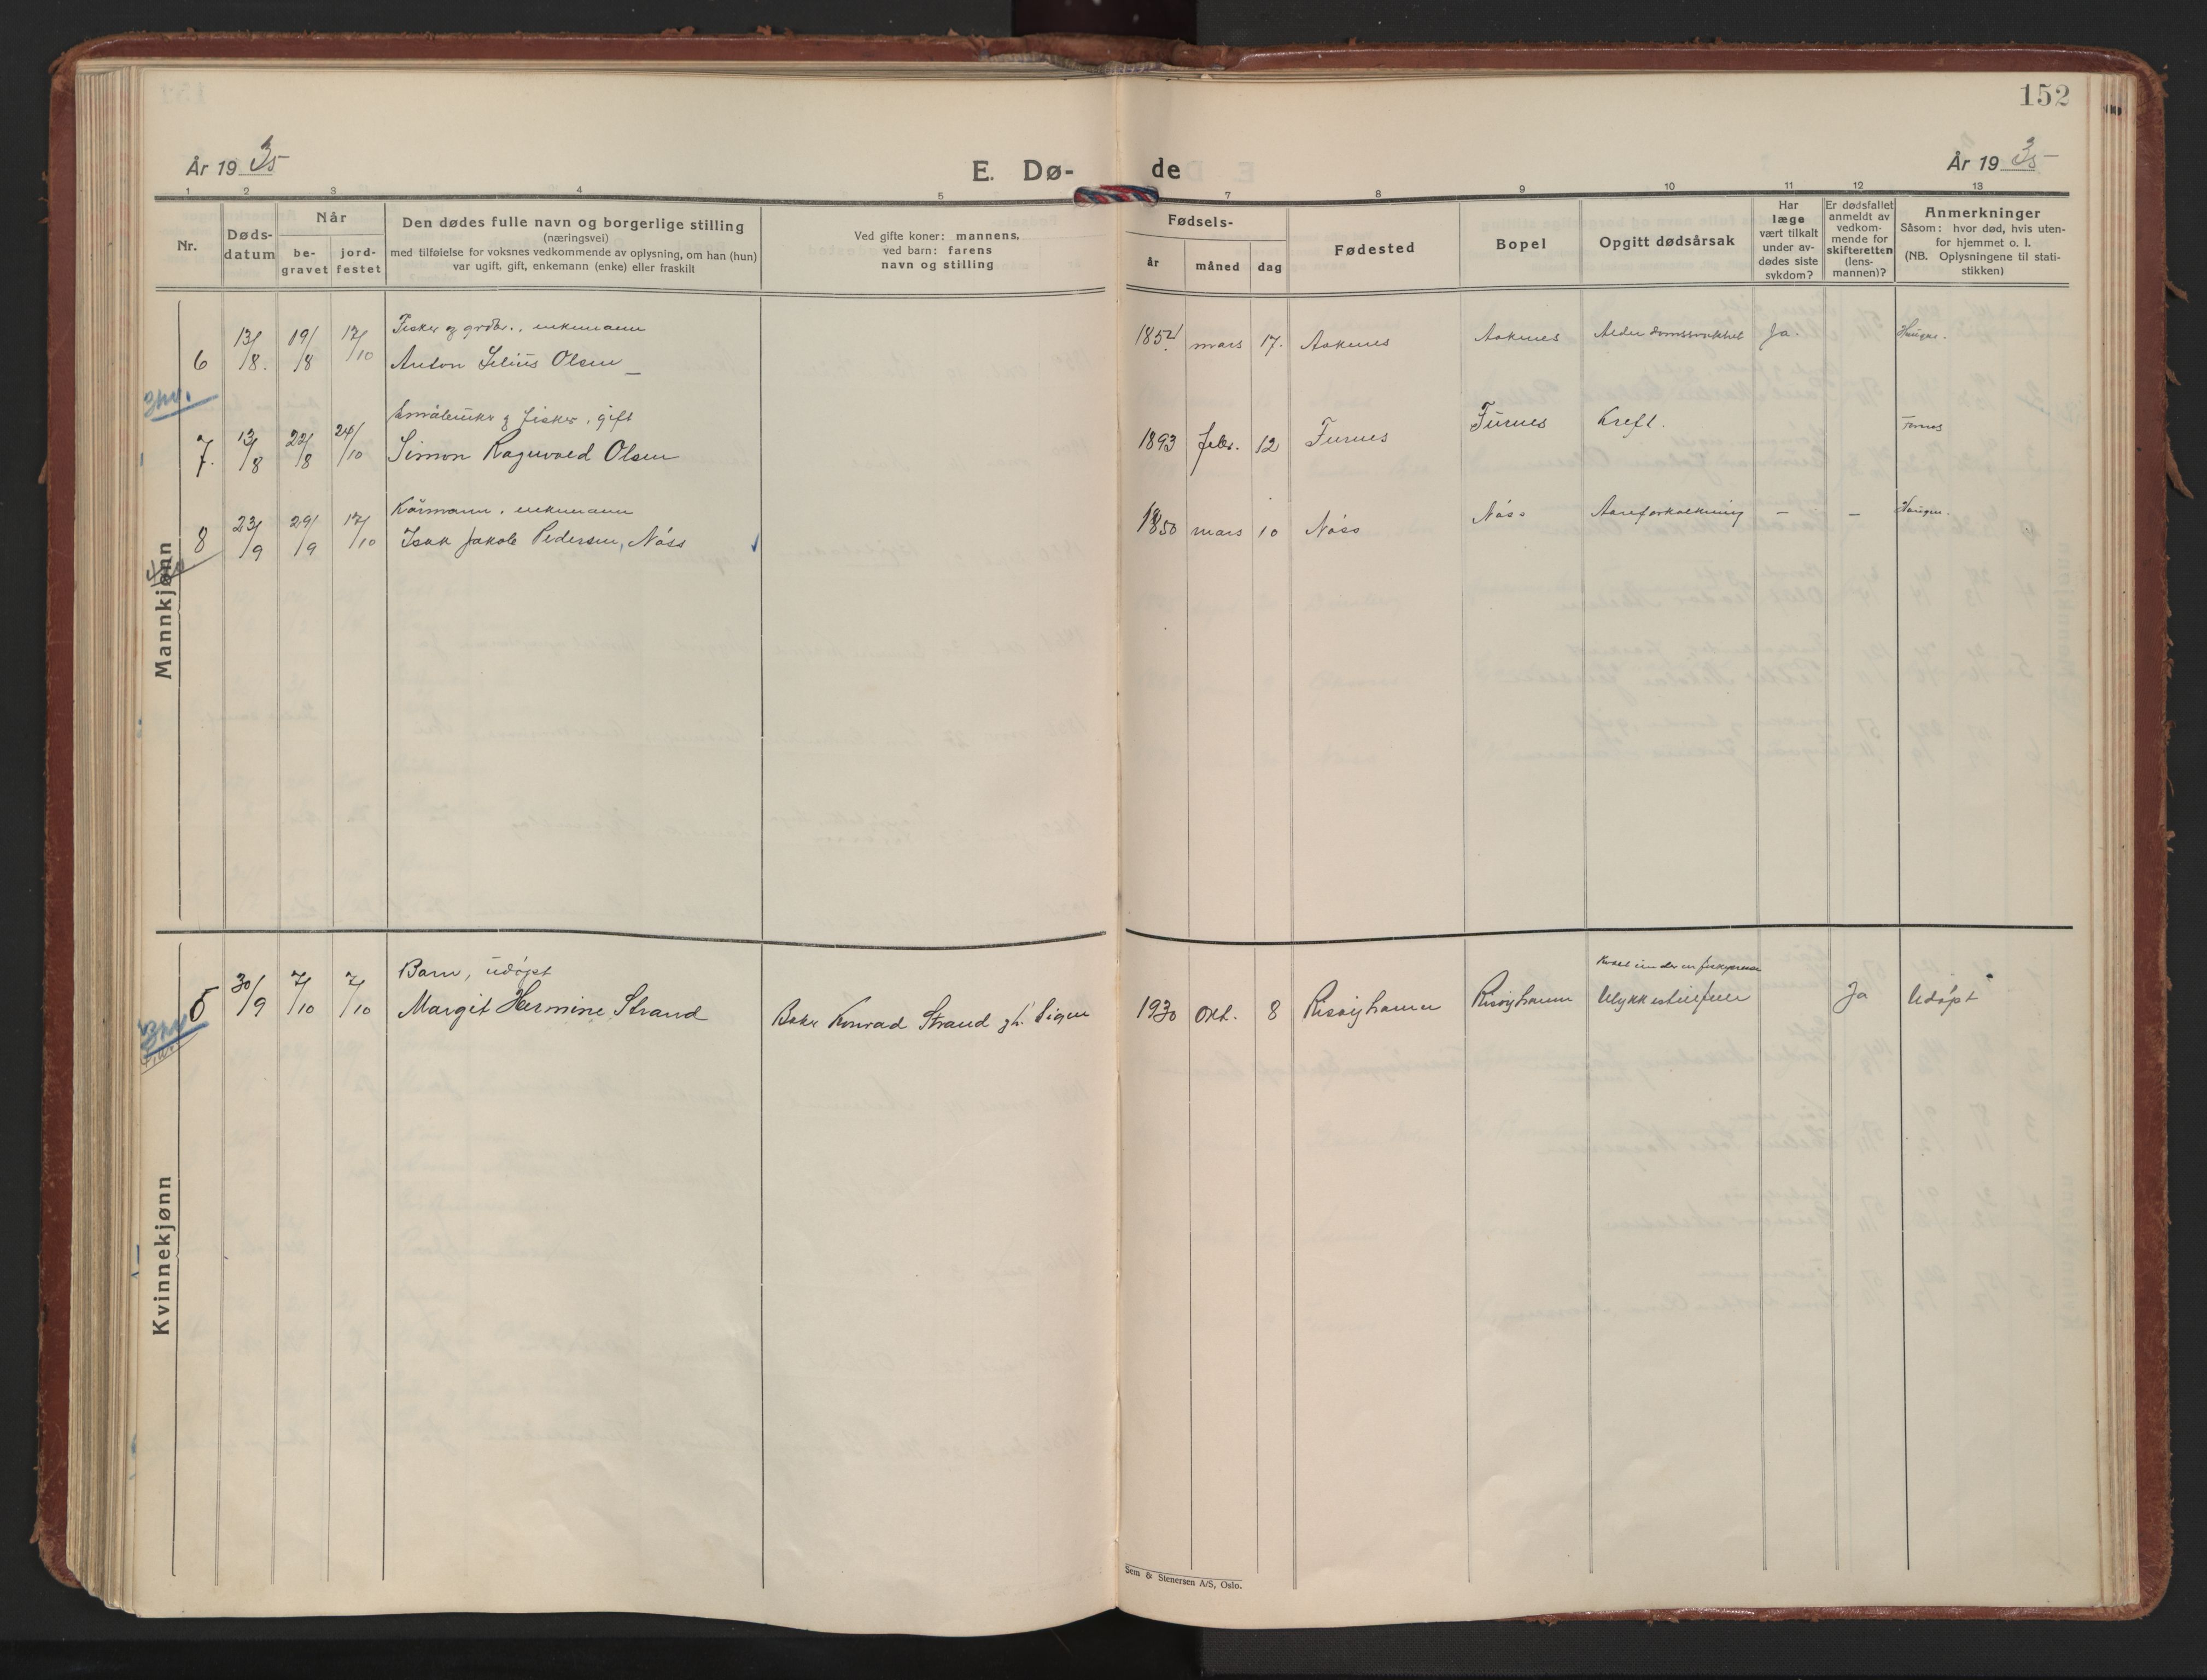 152
År 19 35
E. Dø-
de
År 19 35
1 2 3 4 5 7 8 9 10 11 12 13
Nr.
Døds-
datum
Når
be-
gravet
jord-
festet
Den dødes fulle navn og borgerlige stilling
(næringsvei)
med tilføielse for voksnes vedkommende av oplysning, om han (hun)
var ugift, gift, enkemann (enke) eller fraskilt
Ved gifte koner: mannens,
ved barn: farens
navn og stilling
Fødsels-
år
måned
dag
Fødested
Bopel
Opgitt dødsårsak
Har
læge
vært tilkalt
under av-
dødes siste
sykdom?
Er dødsfallet
anmeldt av
vedkom-
mende for
skifteretten
(lens-
mannen)?
Anmerkninger
Såsom: hvor død, hvis uten-
for hjemmet o. l.
(NB. Oplysningene til stati-
stikken)
Mannkjønn
Fisker og grdbr., enkemann
6 13/8. 19/8 17/10 Anton Selius Olsen 1852 mars 17. Aaknes Aaknes Alderdomssvakhet Ja.
Småbruker og fisker, gift
7. 13/8 22/8 24/10 Simon Ragnvald Olsen 1893 febr. 12 Furnes Furnes Kreft.
Kårmann, enkemann
8 23/9 29/9 17/10 Isak Jakob Pedersen, Näss 1850 mars 10 Näss Näss Aareforkalkning - -
Kvinnekjønn
Barn, udøpt
5 30/9 7/10 7/10 Margit Hermine Strand Baker Konrad Strand gh. Signe 1930 okt. 8 Risøyhamn Risøyhamn Ulykkestilfelle Ja Udøpt
Sem & Stenersen A/S, Oslo.